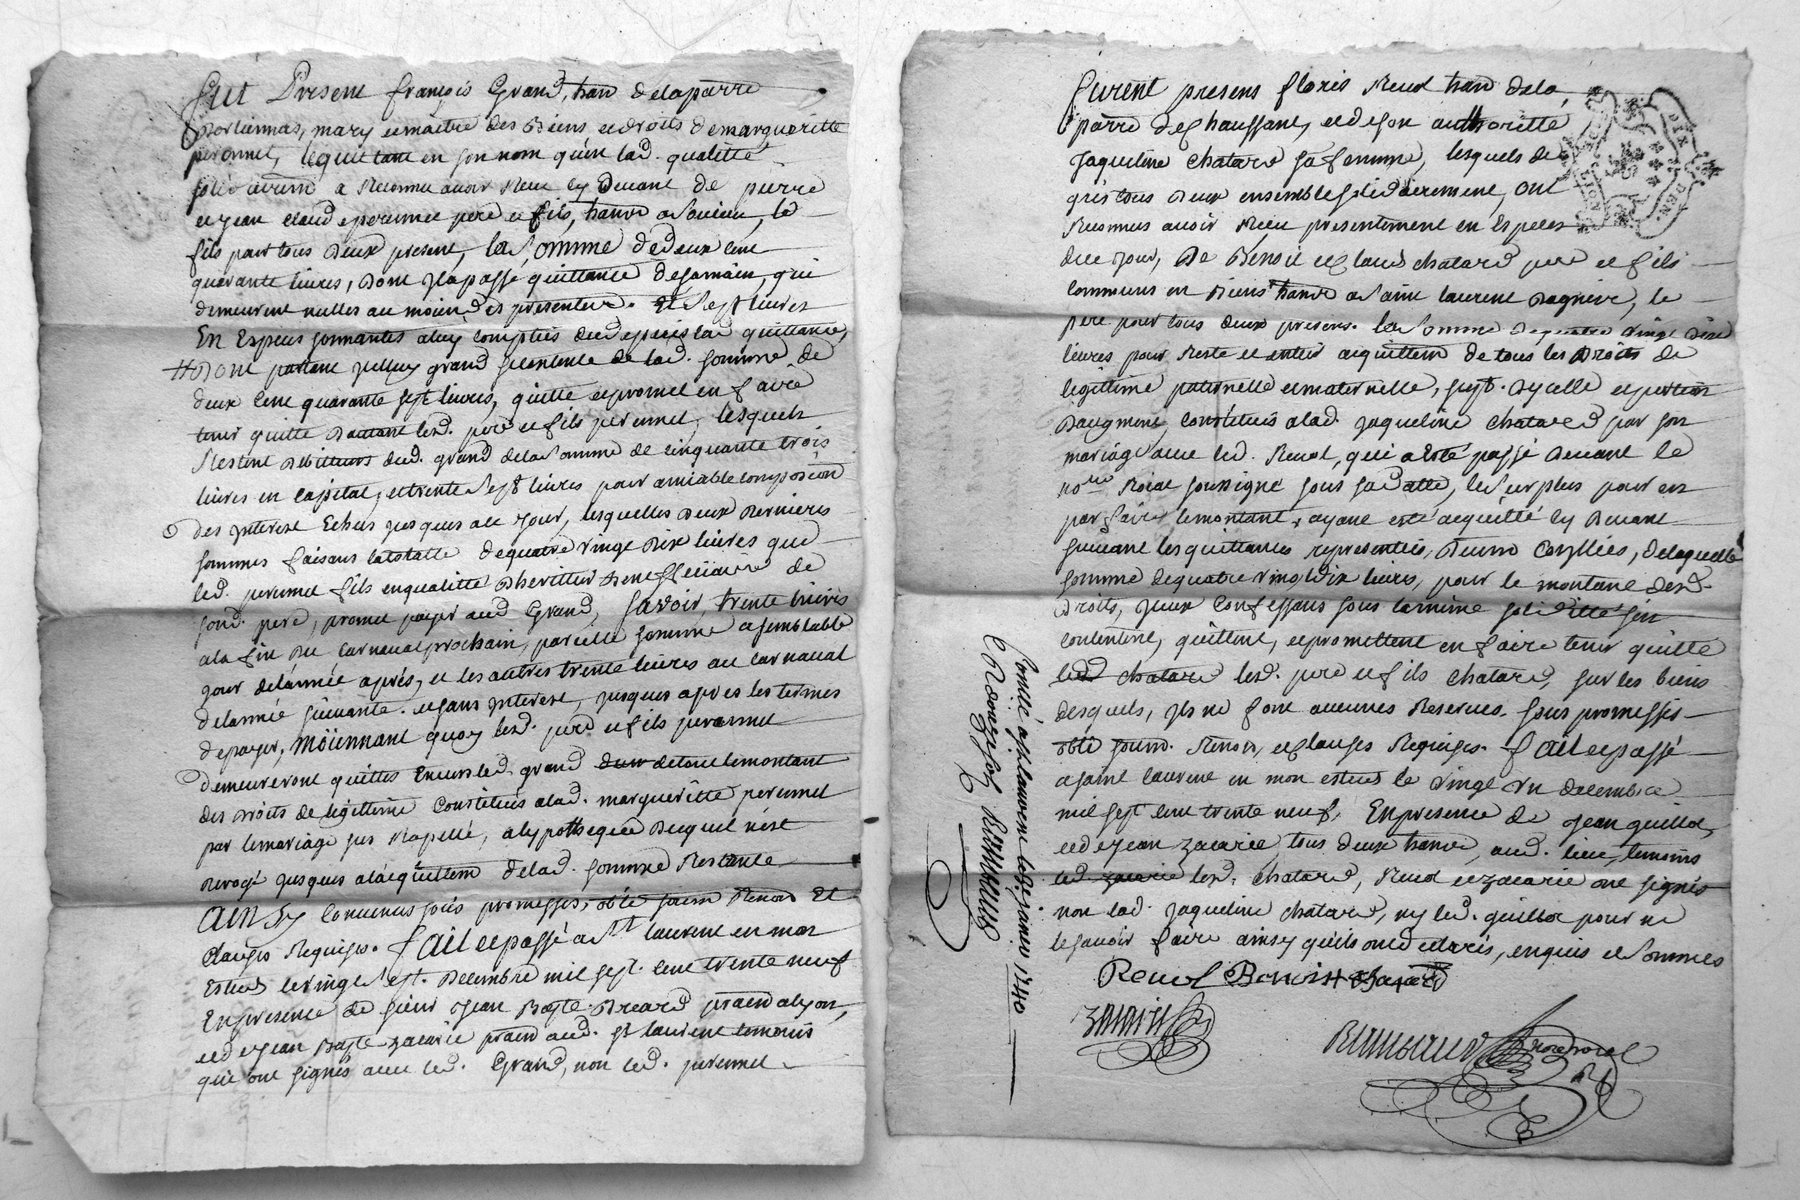 fut Present françois Grand, hant delaparre
mary et maitre des Biens et droits de margueritte
peronnel, lequel tant en son nom qu'en lad. qualitté
a Reconnu avoir Receu cy Devant de pierre
et jean claude peronnel pere et fils, hants le
fils pour tous deux present, la Somme de deux cent
quarante livres, Dont Jl a passé quittance de sa main, qui
demeurent nulles au moien des presentes. Et Sept livres
En Especes sonnantes a luy comptées dud. depuis lad. quittance,
Dont grand se contente de lad. somme de
deux Cent quarante sept livres, quitte et promet en faire
tenir quitte lesd. pere et fils peronnel, lesquels
Restent Debitteurs dud. grand de la Somme de Cinquante trois
livres en Capital, et trente Sept livres pour amiable composition
des Jnterest Echus jusques a ce jour, lesquelles Deux Dernieres
sommes faisant la totalle de quatre vingt Dix livres que
led. peronnel fils en qualitté D'heritier Beneficiaire de
sond. pere, promet payer aud. Grand, Savoir, trente livres
a la fin du Carnaval prochain, pareille somme a semblable
jour de l'année après, et les autres trente livres au Carnaval
de l'année suivante. et sans Jnterest, jusques après les termes
de payer, Moiennant quoy lesd. pere et fils peronnel
demeureront quittes Envers led. grand de tout le montant
des Droits de legittime Constitués a lad. margueritte peronnel
par le mariage sus Rapellé, a l'ypotheque Duquel n'est
Derogé jusques a l'acquittem. de lad. somme Restante
Ainsy Convenus sous promesses, oblé. soum. Renon. Et
Clauses Requises. fait et passé a St. laurent en mon
Estude le vingt Sept. Decembre mil sept. Cent trente neuf
En presence de Sieur Jean Bapte. Breard pratn. a lyon,
et de Jean Bapte. Zacarie pratn. aud. St. laurent temoins
qui ont signés avec led. Grand, non led. peronnel
furent presens floris Revol hant de la
parre de Chaussant, et de son authorité
Jaqueline Chatard sa femme, lesquels de
gré tous Deux ensemble solidairement, ont
Reconnus avoir Receu presentement en Especes
de ce jour, De Benoit et Claude Chatard pere et fils
communs en Biens hants a Saint laurent Dagnine, le
pere pour tous deux present. la Somme de quatre vingt Dix
livres pour Reste et entier acquittem. de tous les Droits de
legittime paternelle et maternelle, supt. D'ycelle et portion
Daugment, Constitués a lad. Jaqueline Chatard par son
mariage avec led. Revol, qui a Esté passé Devant le
nore. Roial soussigné sous sa datte, le Surplus pour en
parfaire le montant, ayant esté acquitté Cy Devant
suivant les quittances representées, De laquelle
somme de quatre vingt Dix livres, pour le montant desd.
Droits, Jceux Confessans sous la mesme solidité s'en
contentent, quittent, et promettent en faire tenir quitte
lesd. pere et fils Chatard, sur les biens
desquels, Jls ne font aucunes Reserves. sous promesses
oblé. soum. Renon. et Clauses Requises. fait et passé
a saint laurent en mon estude le vingt un decembre
mil sept Cent trente neuf, En presence de Jean guillot,
et de Jean Zacarie, tous Deux hants aud. lieu, temoins
lesd. Chatard, Revol et Zacarie ont signés
non lad. Jaqueline Chatard, ny led. guillot pour ne
le scavoir faire ainsy qu'ils ont declarés, enquis et Sommés
Revol Benoist Chatard
Zacarie
1740
DIX DEN.
LION